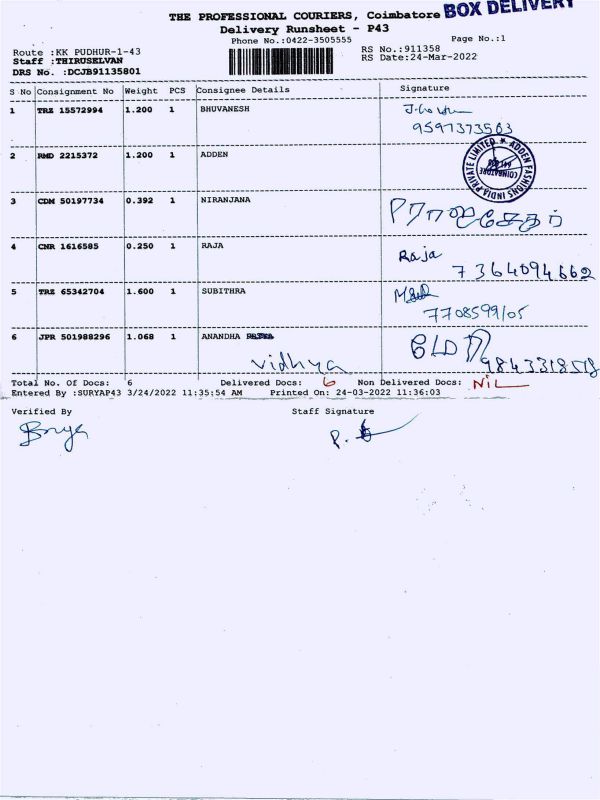 BOX DELIVERY
THE PROFESSIONAL COURIERS, Coimbatore
Delivery Runsheet - P43
Phone No.:0422-3505555 Page No.:1
Route :KK PUDHUR-1-43 RS No.:911358
Staff :THIRUSELVAN RS Date:24-Mar-2022
DRS No. :DCJB91135801
S No Consignment No Weight PCS Consignee Details Signature
1 TRZ 15572994 1.200 1 BHUVANESH
9597373563
2 RMD 2215372 1.200 1 ADDEN
ADDEN FASHIONS INDIA PRIVATE LIMITED COIMBATORE
3 CDM 50197734 0.392 1 NIRANJANA
4 CNR 1616585 0.250 1 RAJA Raja
7364094662
5 TRZ 65342704 1.600 1 SUBITHRA
7708599105
6 JPR 501988296 1.068 1 ANANDHA
vidhya 9843318518
Total No. Of Docs: 6 Delivered Docs: 6 Non Delivered Docs: NiL
Entered By :SURYAP43 3/24/2022 11:35:54 AM Printed On: 24-03-2022 11:36:03
Verified By Staff Signature